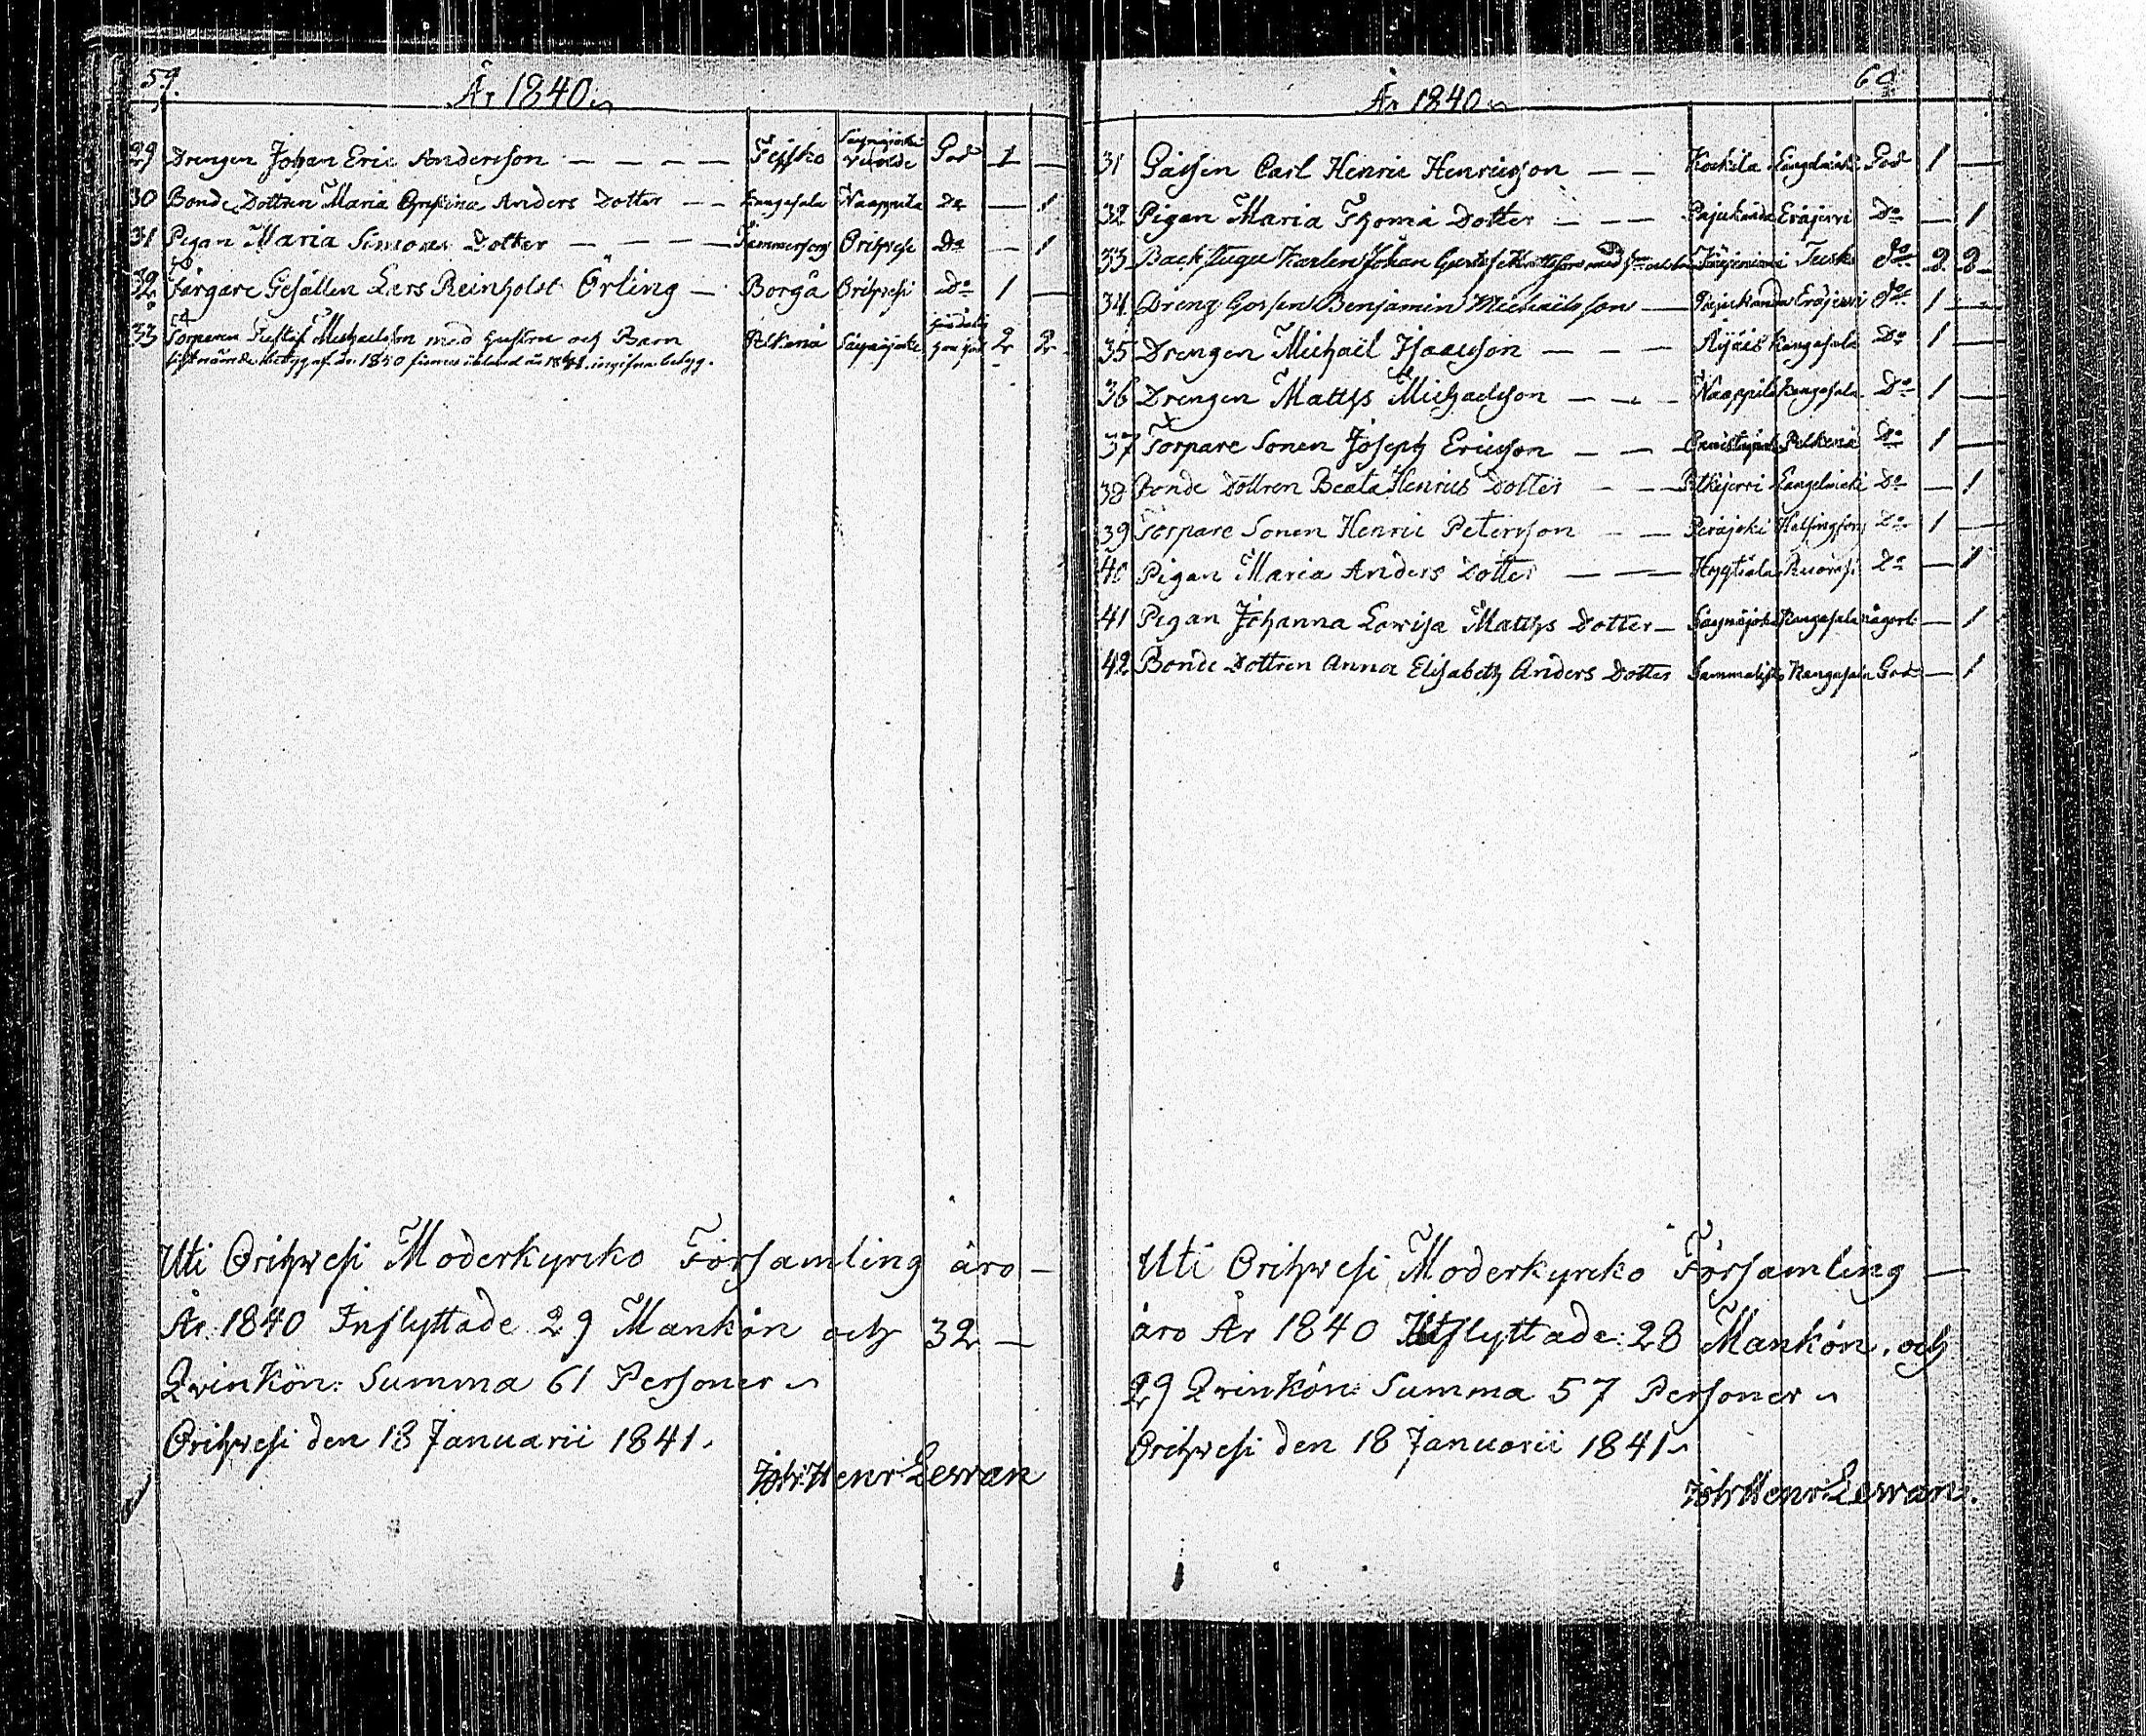 59.
År 1840
29 Drengen Johan Eric Andersson — — — — Godt 1 —
30 Bonde Dottren Maria Christina Anders Dotter — — Kangasala Naappila Do — 1
31 Pigan Maria Simons Dotter — — — — Tammerfors Orihvesi Do — 1
32 Färgare Gesällen Lars Reinholdt Örling — Borgå Orihvesi Do 1 —
33 Torparen Gustaf Michaelsson med hustru och Barn Pelkenä 2 2
Uti Orihvesi Moderkyrko Församling äro —
År 1840 Inflyttade 29 Mankön och 32 —
Qvinkön: Summa 61 Personer
Orihvesi den 18 Januarii 1841.
Joh: Henr: Lewan
60
År 1840
31 Gossen Carl Henric Henricsson — — Längelmäki God 1 —
32 Pigan Maria Thoma Dotter — — — Pajukanda Eräjervi Do — 1
33 Backstugu Karlen Johan Do 2 2
34 Dreng Gossen Benjamin Michaelsson — Pajukanda Eräjervi Do 1 —
35 Drengen Michaël Isacsson — — — Kangasala Do 1 —
36 Drengen Matths Michaelsson — — — Naappila Kangasala Do 1 —
37 Torpare Sonen Joseph Ericsson — — Pelkenä Do 1 —
38 Bonde Dottren Beata Henrics Dotter — — Pitkäjervi Längelmäki Do — 1
39 Torpare Sonen Henric Petersson — — Peräjoki Helsingfors Do 1 —
40 Pigan Maria Anders Dotter — — — Ruovesi Do — 1
41 Pigan Johanna Lovisa Matths Dotter — Säynäjoki Kangasala — 1
42 Bonde Dottren Anna Elisabeth Anders Dotter Kangasala God — 1
Uti Orihvesi Moderkyrko Församling —
äro År 1840 Utflyttade: 28 Mankön, och
29 Qvinkön: Summa 57 Personer
Orihvesi den 18 Januarii 1841
Joh: Henr: Lewan.